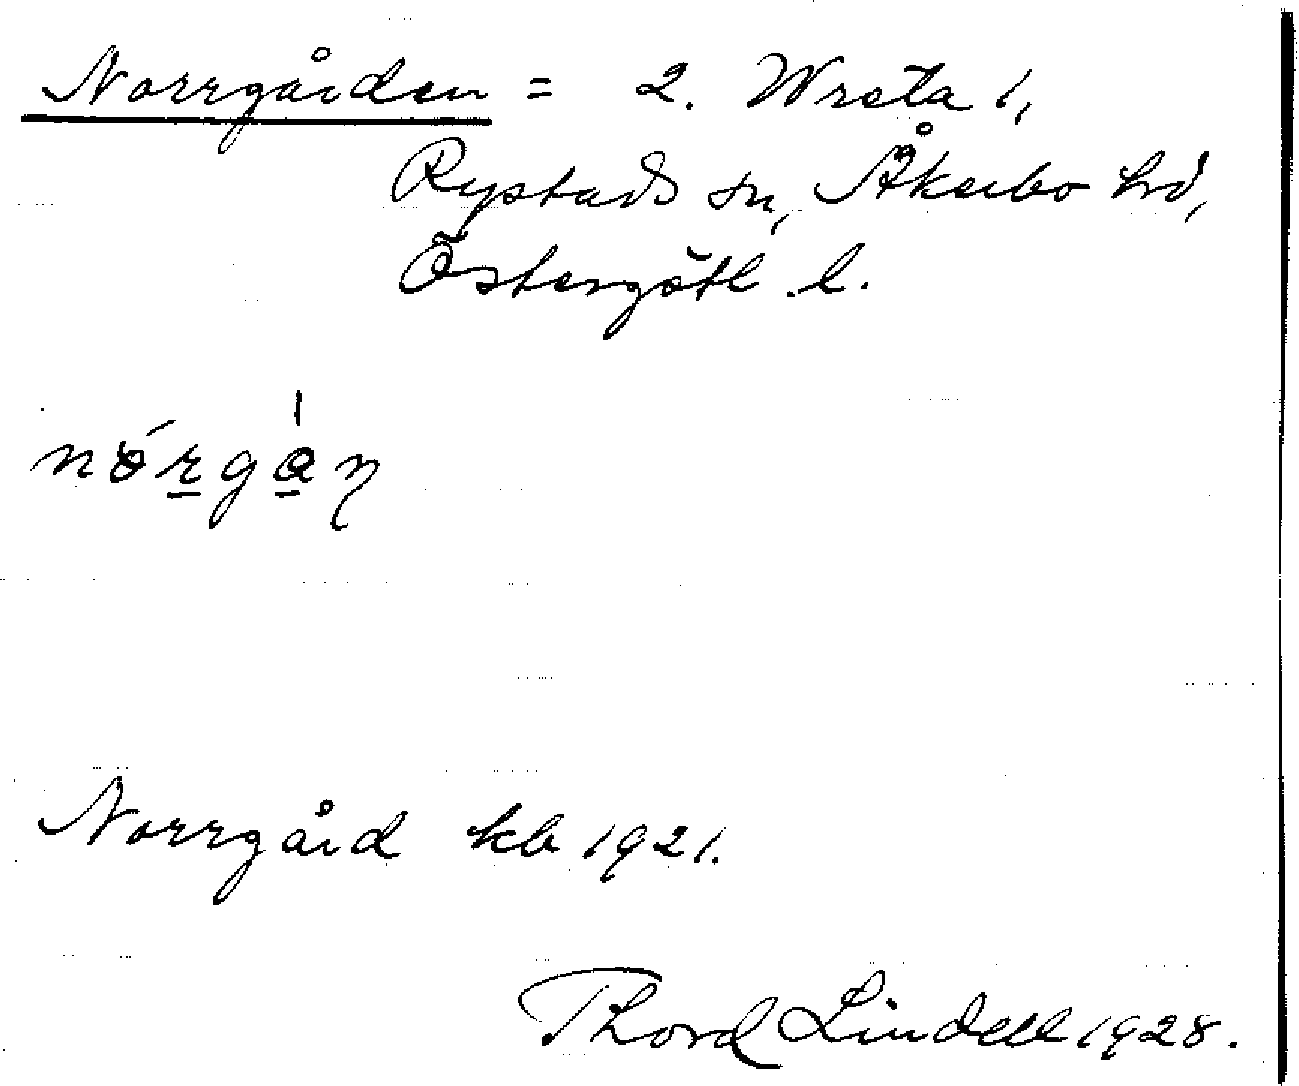 Norrgården = 2. Wreta 1,
Rystads sn, Åkerbo hd,
Östergötl. l.
Norrgård kb 1921.
Thord Lindell 1928.